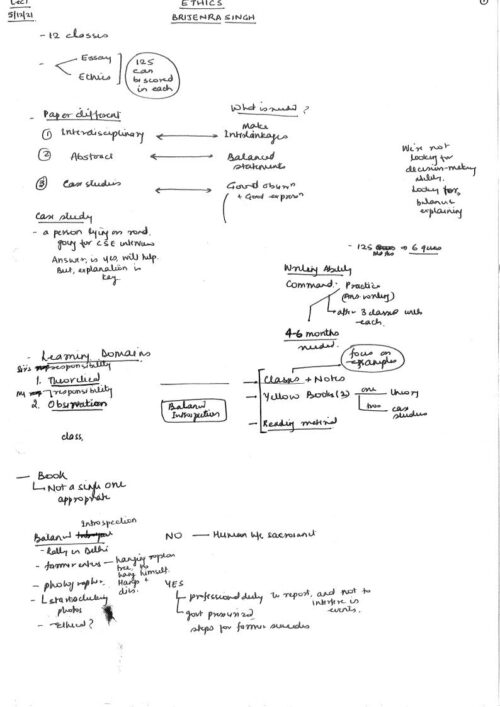 Lec 1
5/12/21
ETHICS
BRIJENRA SINGH
- 12 classes
- Essay
Ethics
125
can
be scored
in each
- Paper different
What is needed ?
① Interdisciplinary
Make
Interlinkages
② Abstract
Balanced
statements
③ Case studies
Good obsvn
+ Good exprssn
We're not
looking for
decision-making
ability.
Looking for,
balance
explaining
Case study
- a person lying on road,
going for CSE interview
Answer, is yes, will help.
But, explanation is
key.
- 125 marks → 6 ques
Writing Ability
Command: Practice
(Ans writing)
after 3 classes with
each.
4-6 months
needed.
- Learning Domains
Sir's responsibility
1. Theoretical
My responsibility
2. Observation
Balanced
Introspection
focus on
examples
Classes + Notes
Yellow Books (2)
one theory
two case
studies
Reading material
class,
- Book
Not a single one
appropriate
Introspection
Balanced
- Rally in Delhi
- farmer enters - hanging rope on
tree, to
hang himself.
Hangs +
dies.
- photographer
- starts clicking
photos
- Ethical?
NO - Human life sacrosanct
YES
professional duty to report, and not to
interfere in
events.
govt pressurized
steps for farmer suicides